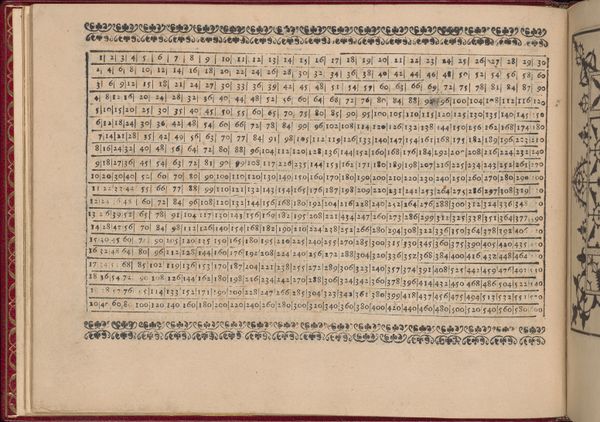 1 2 3 4 5 6 7 8 9 10 11 12 13 14 15 16 17 18 19 20 21 22 23 24 25 26 27 28 29 30
2 4 6 8 10 12 14 16 18 20 22 24 26 28 30 32 34 36 38 40 42 44 46 48 50 52 54 56 58 60
3 6 9 12 15 18 21 24 27 30 33 36 39 42 45 48 51 54 57 60 63 66 69 72 75 78 81 84 87 90
4 8 12 16 20 24 28 32 36 40 44 48 52 56 60 64 68 72 76 80 84 88 92 96 100 104 108 112 116 120
5 10 15 20 25 30 35 40 45 50 55 60 65 70 75 80 85 90 95 100 105 110 115 120 125 130 135 140 145 150
6 12 18 24 30 36 42 48 54 60 66 72 78 84 90 96 102 108 114 120 126 132 138 144 150 156 162 168 174 180
7 14 21 28 35 42 49 56 63 70 77 84 91 98 105 112 119 126 133 140 147 154 161 168 175 182 189 196 203 210
8 16 24 32 40 48 56 64 72 80 88 96 104 112 120 128 136 144 152 160 168 176 184 192 200 208 216 224 232 240
9 18 27 36 45 54 63 72 81 90 99 108 117 126 135 144 153 162 171 180 189 198 207 216 225 234 243 252 261 270
10 20 30 40 60 70 80 90 100 110 120 130 140 150 160 170 180 190 200 210 220 230 240 250 260 270 280
11 22 33 44 55 66 77 88 99 110 121 132 143 154 165 176 187 198 209 220 231 242 253 264 275 286 297 308 319
12 24 48 60 72 84 96 108 120 132 144 156 168 180 192 204 216 228 240 252 264 276 288 300 312 324 336 348
13 26 39 52 65 78 91 104 117 130 143 156 169 182 195 208 221 234 247 260 273 286 299 312 325 338 351 364 377
14 28 42 56 70 84 98 112 126 140 154 168 182 196 210 224 238 252 266 280 294 308 322 336 350 364 378 392 406
15 30 45 60 90 105 120 135 150 165 180 195 210 225 240 255 270 285 300 315 330 345 360 375 390 405 420 435
16 32 48 64 80 96 112 128 144 160 176 192 208 224 240 256 272 288 304 320 336 352 368 384 400 416 432 448 464
17 68 85 102 119 136 153 170 187 204 221 238 255 272 289 306 323 340 357 374 391 408 425 442 459 476 493
18 36 54 72 90 108 126 144 162 180 198 216 234 252 270 288 306 324 342 360 378 396 414 432 450 468 486 504 522
57 76 114 133 152 171 190 209 228 247 266 285 304 323 342 361 380 399 418 437 456 475 494 513 532 551
20 40 60 80 100 120 140 160 180 200 220 240 260 280 300 320 340 360 380 400 420 440 460 480 500 520 540 560 580